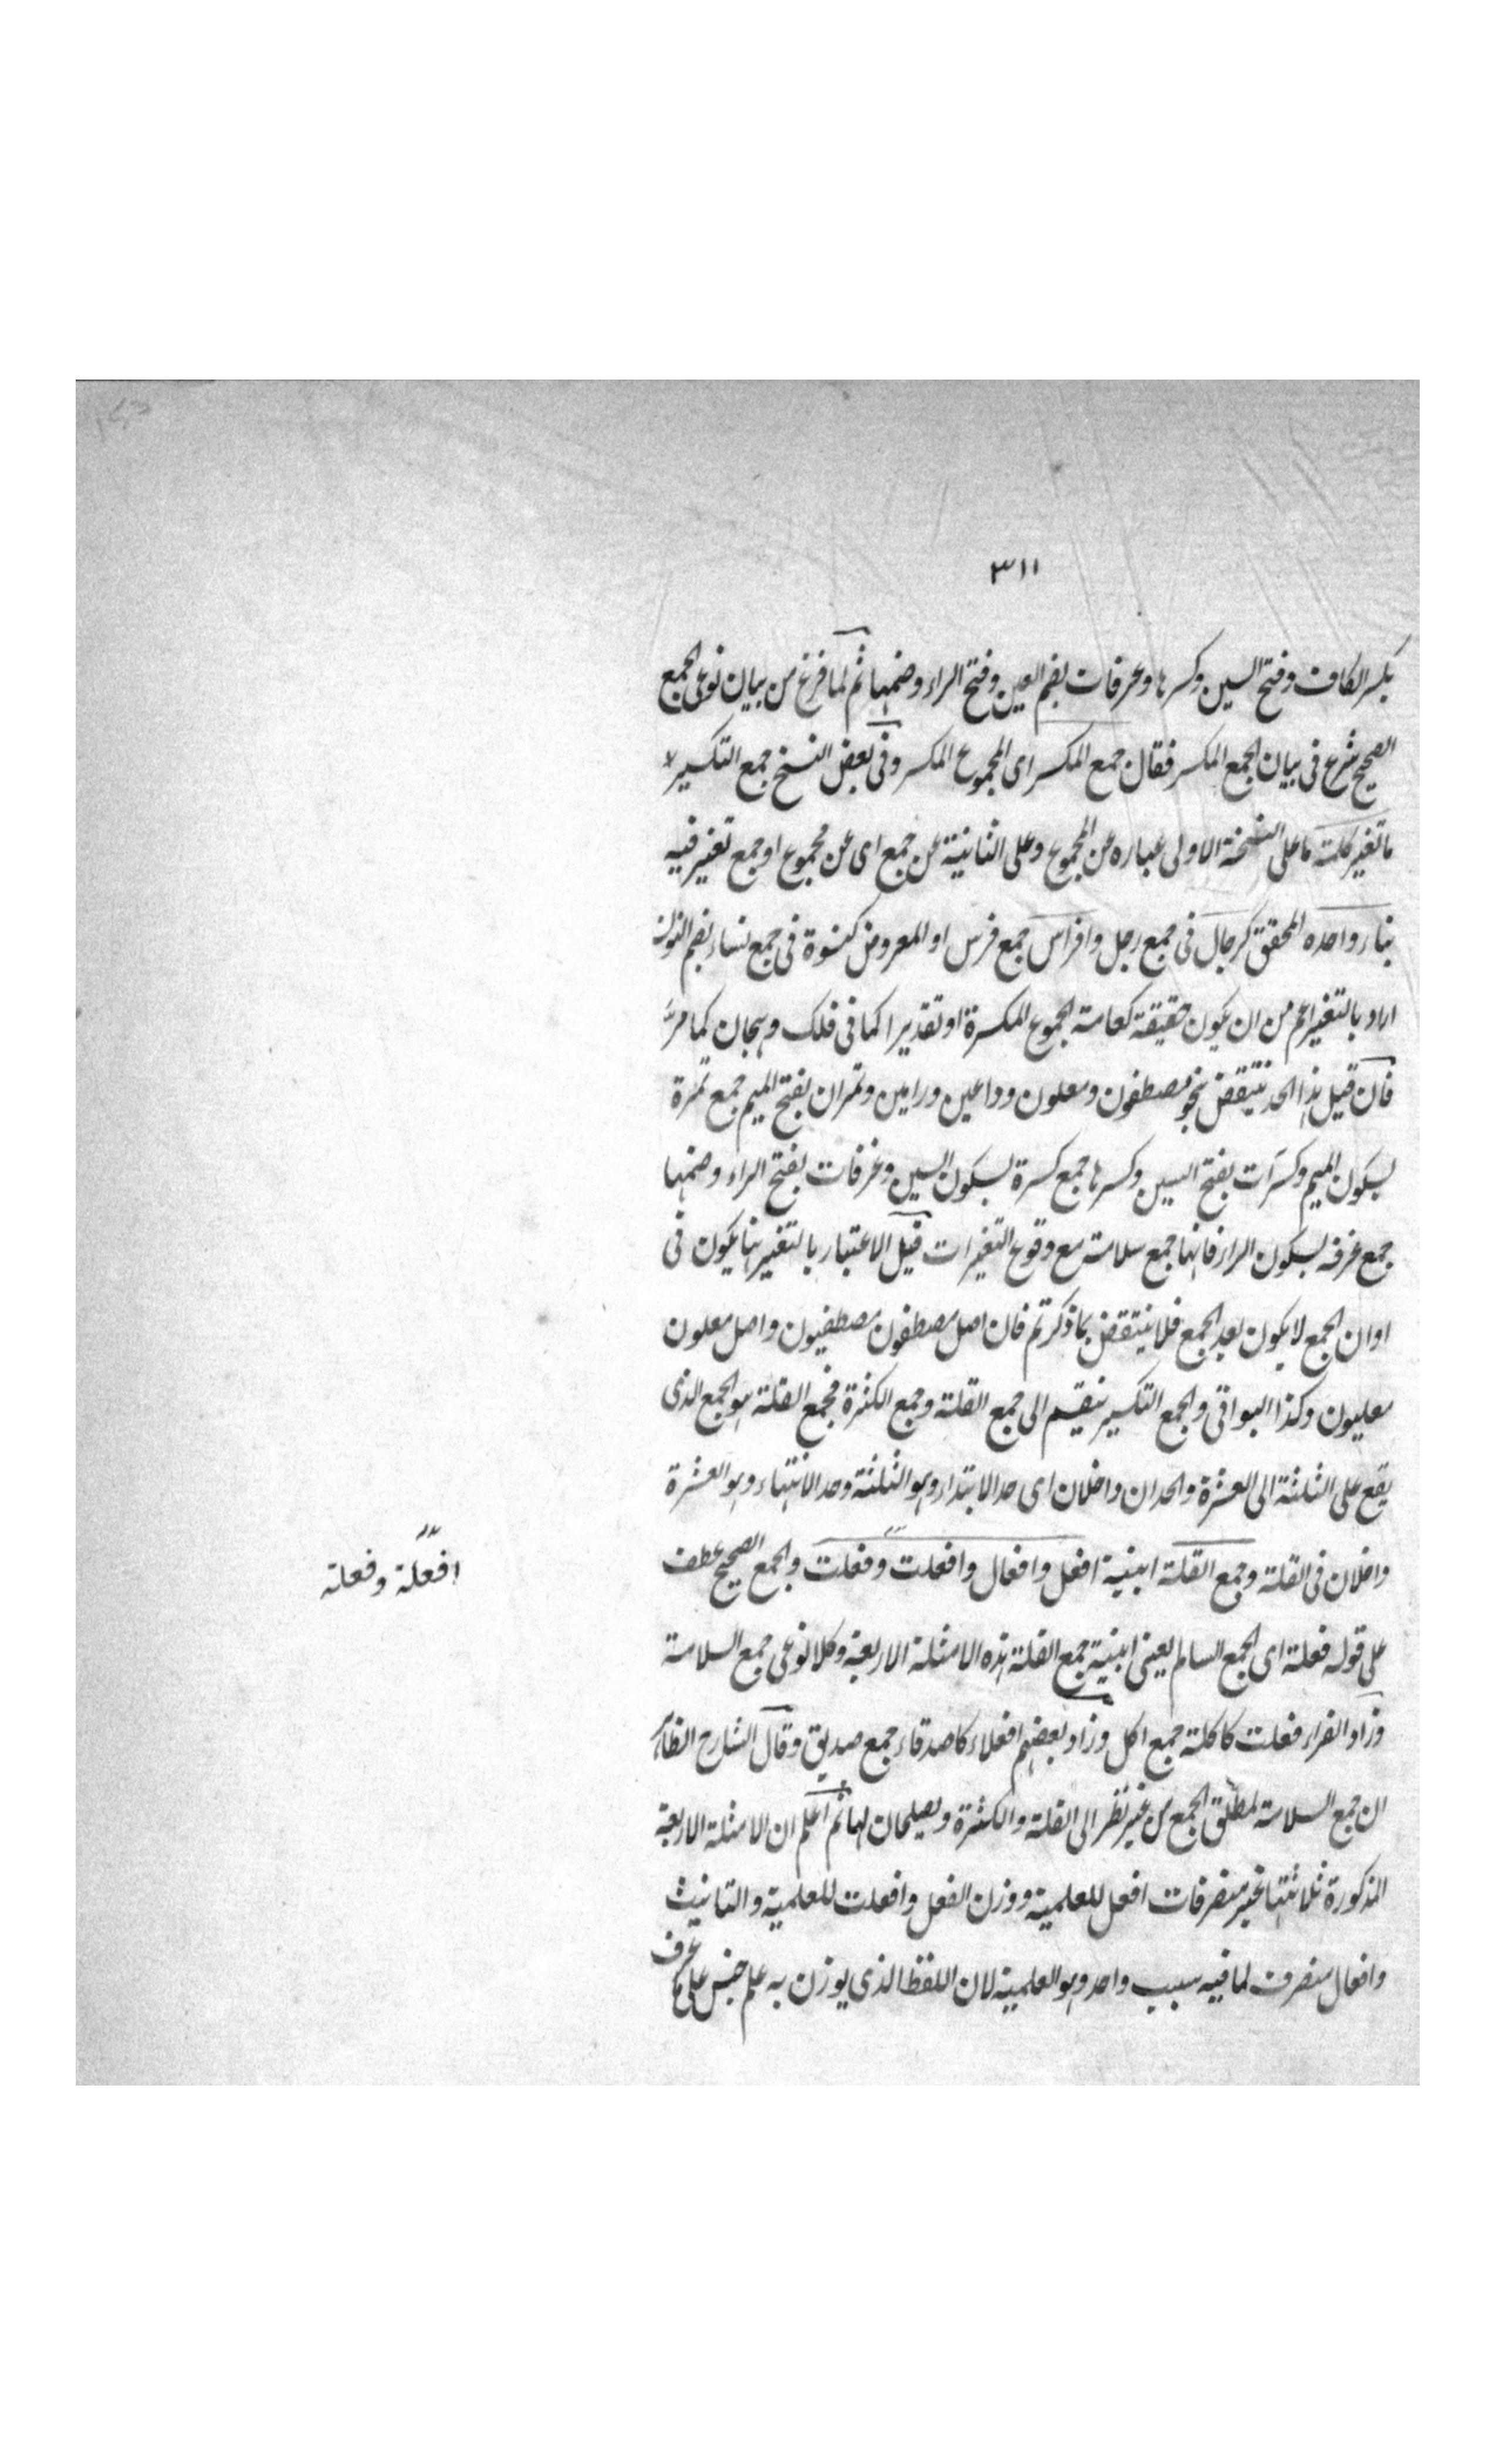 ٣١١
بكسر الكاف وفتح السين وكسرها وغرفات بضم الغين وفتح الراء وضمها ثم لما فرغ من بيان نوعى الجمع
الصحيح شرع فى بيان الجمع المكسر فقال جمع المكسر اى المجموع المكسر وفى بعض النسخ جمع التكسير
ما تغير كلمة ما على النسخة الاولى عبارة عن المجموع وعلى الثانية عن جمع اى عن مجموع او جمع تغير فيه
بناء واحده المحقق كرجال فى جمع رجل وافراس جمع فرس او المفروض كنسوة فى جمع نساء بضم النون
اراد بالتغير اعم من ان يكون حقيقة كعامة الجموع المكسرة او تقديرا كما فى فلك وهجان كما مر
فان قيل هذا الحد ينتقض بنحو مصطفون ومعلون وداعين ورامين وتمران بفتح الميم جمع تمرة
بسكون الميم وكسرات بفتح السين وكسرها جمع كسرة بسكون السين وغرفات بفتح الراء وضمها
جمع غرفة بسكون الراء فانها جمع سلامة مع وقوع التغيرات قيل الاعتبار بالتغير بنا يكون فى
اوان الجمع لا يكون بعد الجمع فلا ينتقض بما ذكرتم فان اصل مصطفون مصطفيون واصل معلون
معليون وكذا البواقى والجمع التكسير ينقسم الى جمع القلة وجمع الكثرة فجمع القلة هو الجمع الذى
يقع على الثلثة الى العشرة والحدان داخلان اى حد الابتداء وهو الثلثة وحد الانتهاء وهو العشرة
داخلان فى القلة وجمع القلة ابنية افعل وافعال وافعلت وفعلت والجمع الصحيح عطف
افعلة وفعلة
على قوله فعلة اى الجمع السالم يعنى ابنية جمع القلة هذه الامثلة الاربعة وكلا نوعى جمع السلامة
وزاد الفراء فعلت كاكلة جمع اكل وزاد بعضهم افعلاء كاصدقاء جمع صديق وقال الشارح الظاهر
ان جمع السلامة لمطلق الجمع من غير نظر الى القلة والكثرة ويصلحان لهما ثم اعلم ان الامثلة الاربعة
المذكورة ثلاثتها غير منصرفات افعل للعلمية ووزن الفعل وافعلت للعلمية والتانيث
وافعال منصرف لما فيه سبب واحد وهو العلمية لان اللفظ الذى يوزن به علم جنس على ما عرف